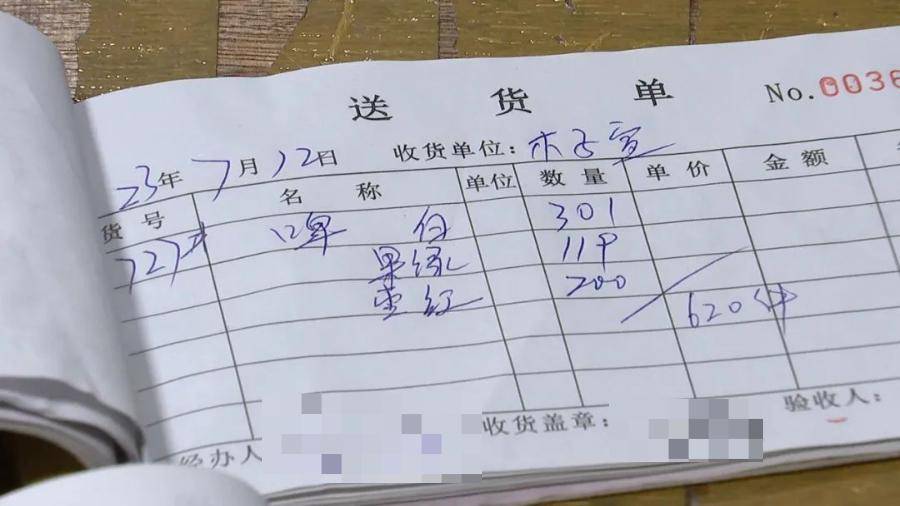 送货单 No.0036
23年7月12日 收货单位:木子宣
货号 名称 单位 数量 单价 金额
白 301
果绿 119
枣红 200 620件
经办人 收货盖章: 验收人: